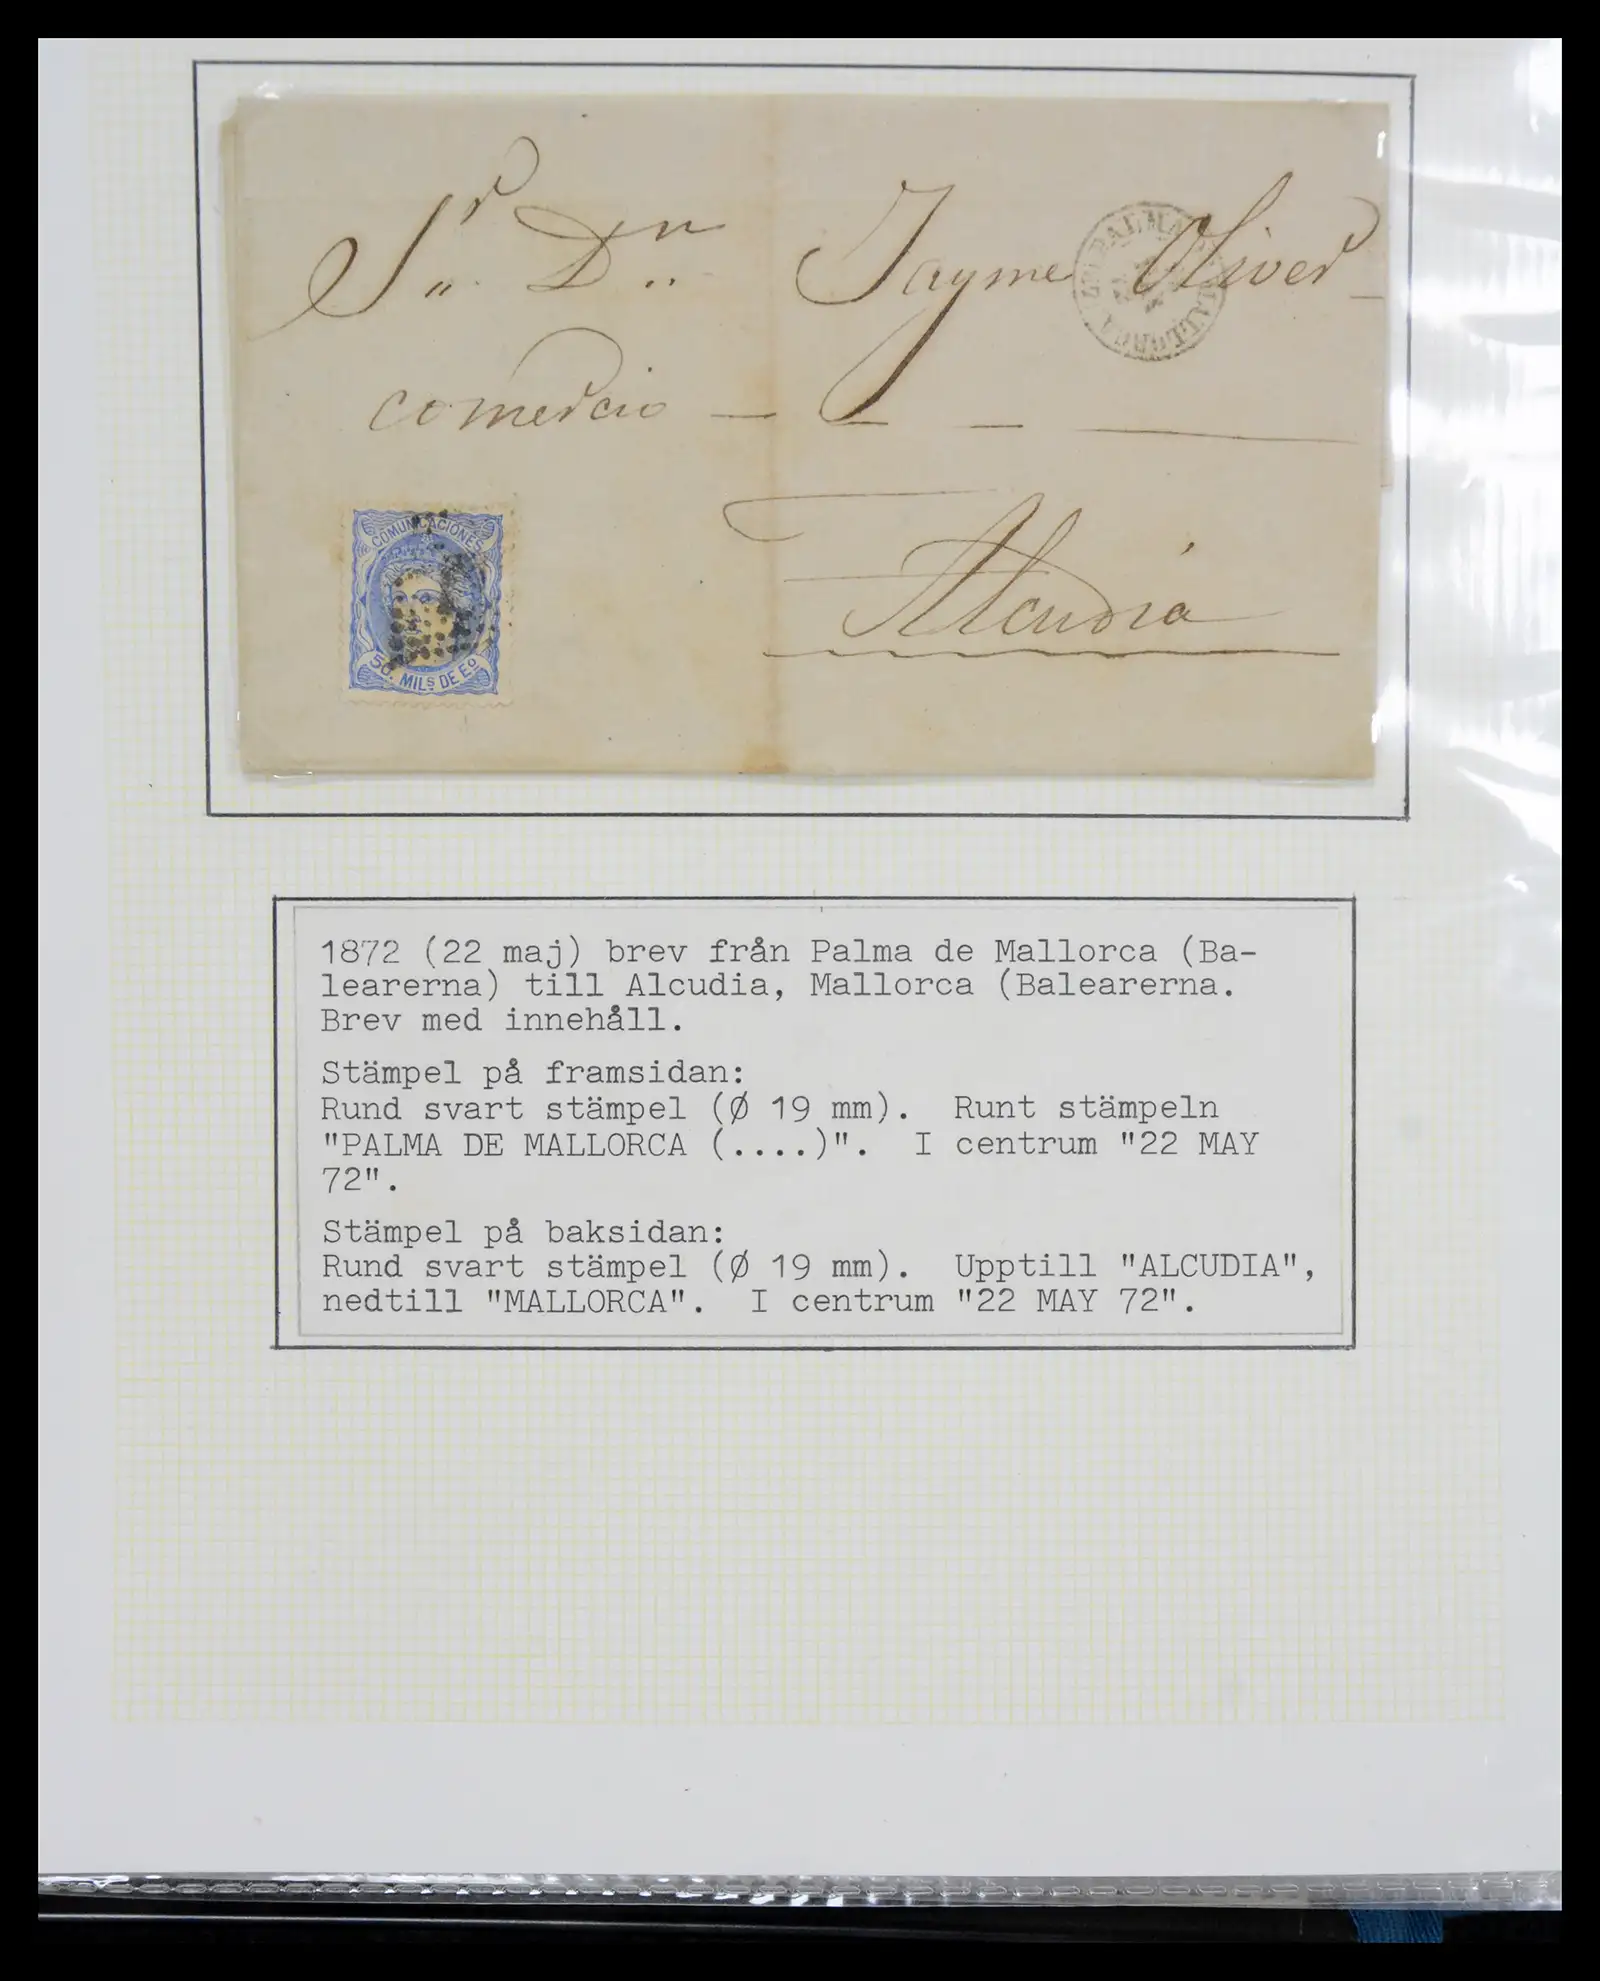 Sr. Dn. Jayme Oliver
comercio
PALMA
COMUNICACIONES
50. MILS DE Eo
Alcudia
1872 (22 maj) brev från Palma de Mallorca (Ba-
learerna) till Alcudia, Mallorca (Balearerna.
Brev med innehåll.
Stämpel på framsidan:
Rund svart stämpel (Ø 19 mm). Runt stämpeln
"PALMA DE MALLORCA (....)". I centrum "22 MAY
72".
Stämpel på baksidan:
Rund svart stämpel (Ø 19 mm). Upptill "ALCUDIA",
nedtill "MALLORCA". I centrum "22 MAY 72".